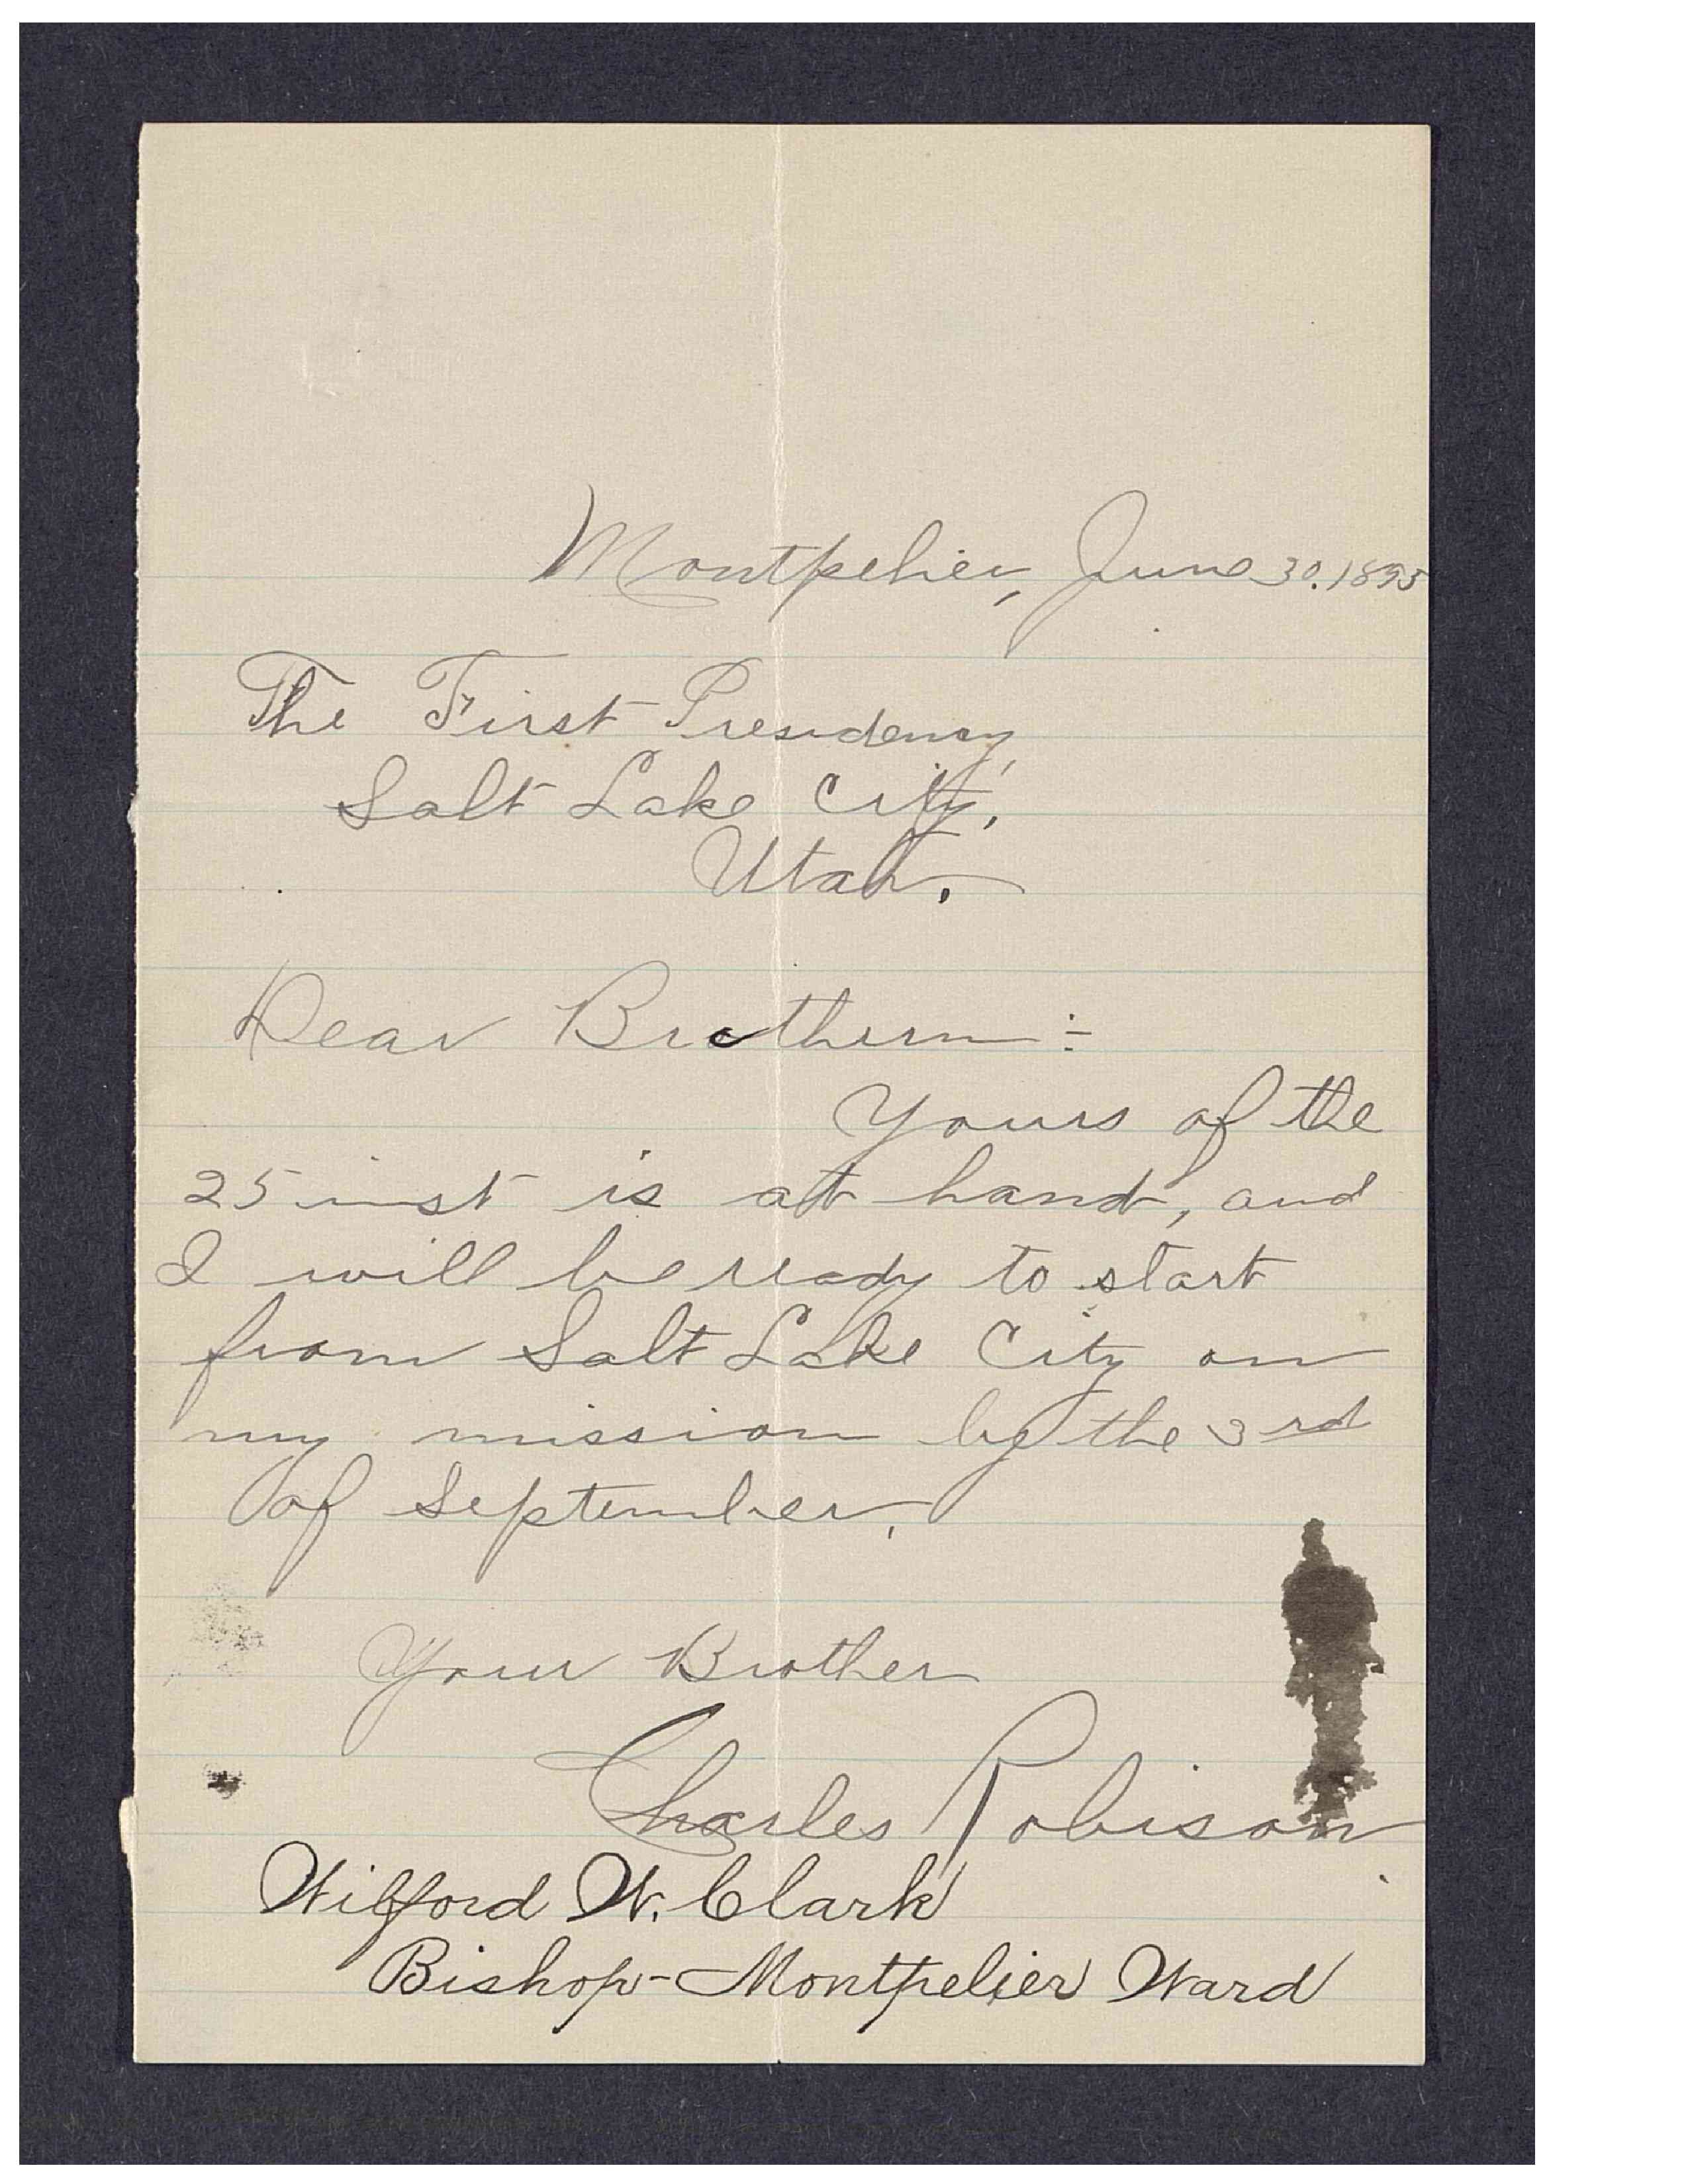 Montpelier, June 30. 1895
The First Presidency,
Salt Lake City,
Utah.
Dear Brethern :-
Yours of the
25 inst is at hand, and
I will be ready to start
from Salt Lake City on
my mission by the 3rd
of September.
Your Brother
Charles Robison
Wilford W. Clark
Bishop - Montpelier Ward